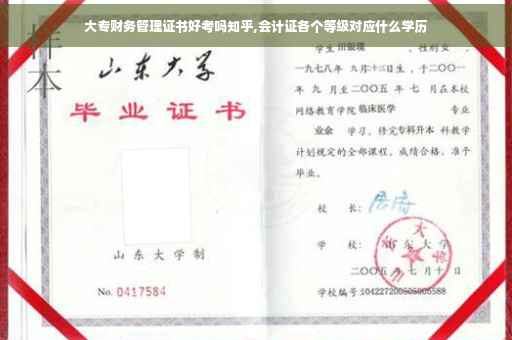 大专财务管理证书好考吗知乎,会计证各个等级对应什么学历
样
本
山东大学
毕业证书
山东大学制
No. 0417584
学生 田骏瑞 ，性别 女 ，
一九七八年 九月十三日生，于二〇〇一
年 九 月至二〇〇五 年 七 月在本校
网络教育学院 临床医学 专业
业余 学习，修完专科升本 科教学
计划规定的全部课程，成绩合格，准予
毕业。
校 长：
学 校： 山东大学
二〇〇五 年 七 月 十 日
学校编号:104227200505005588